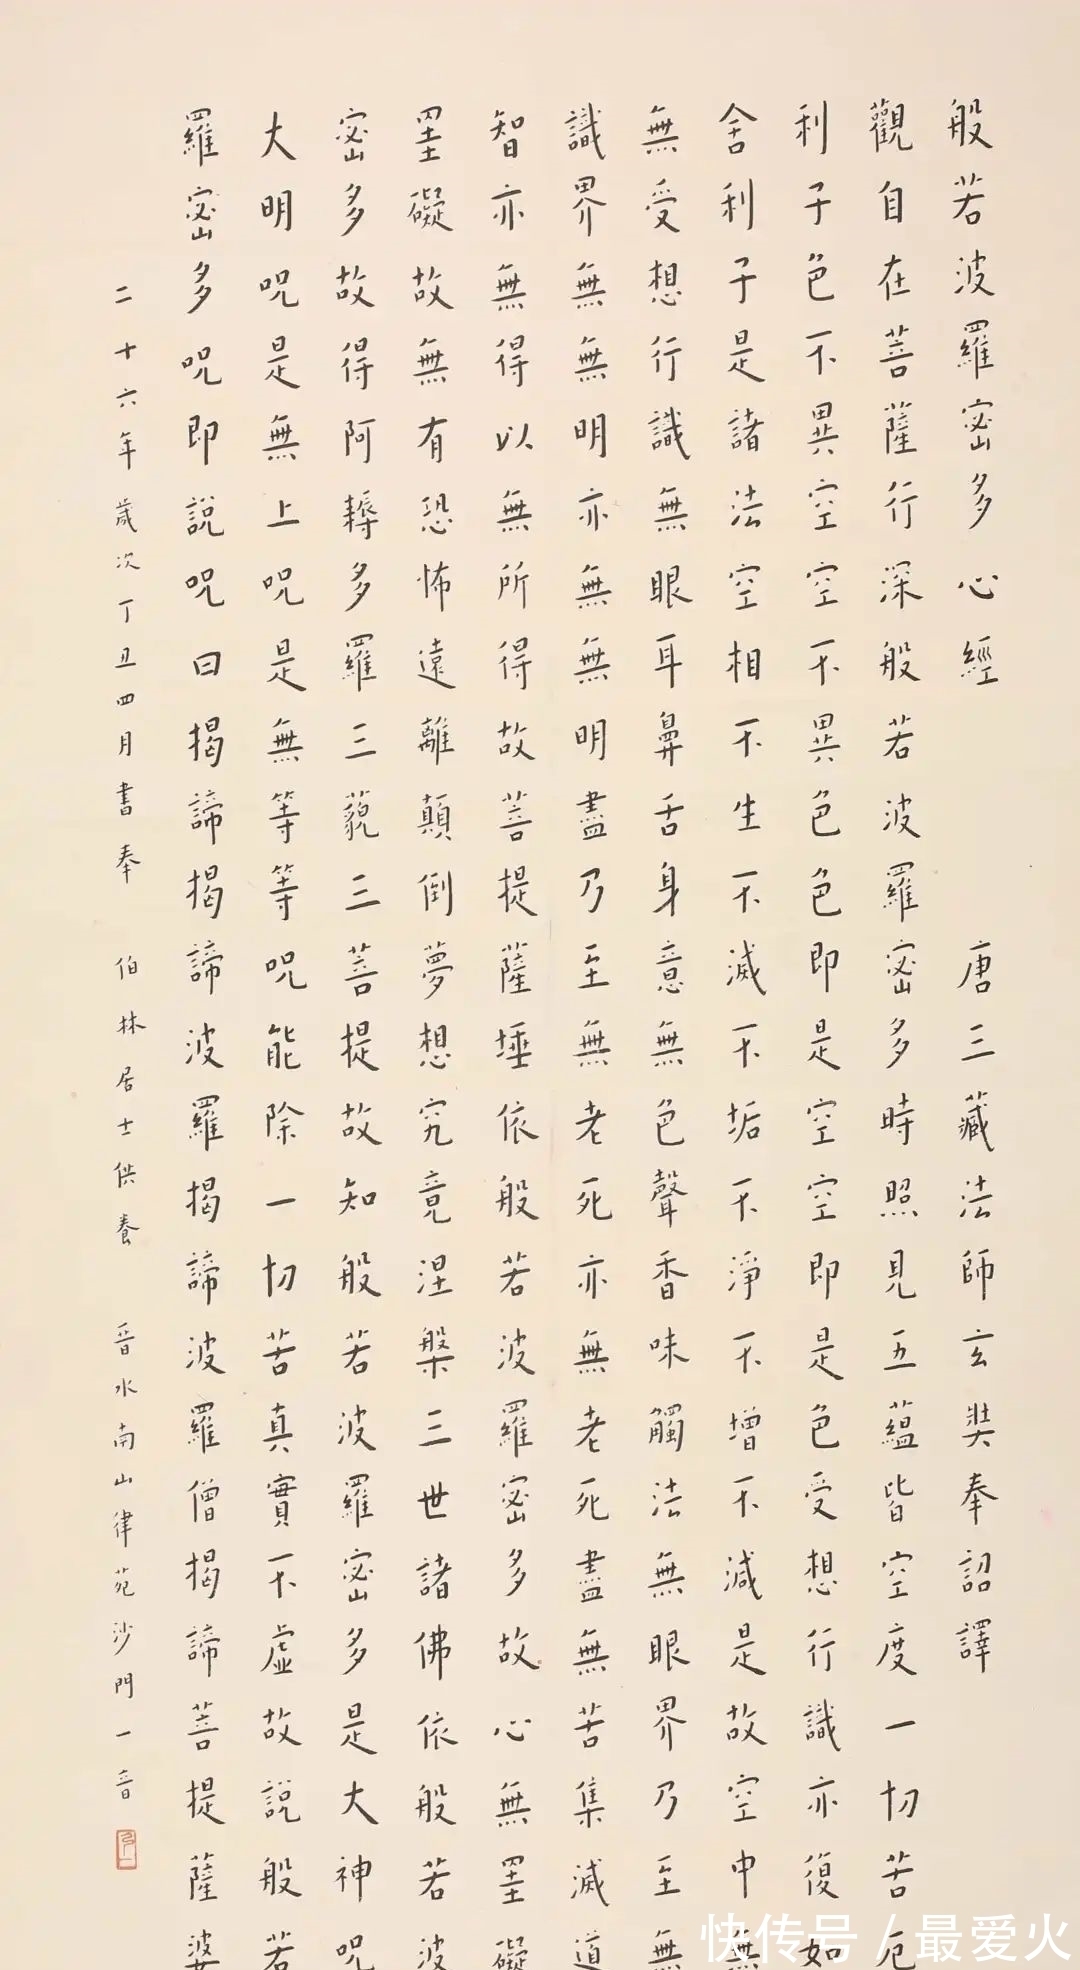 般若波羅蜜多心經 唐三藏法師玄奘奉詔譯
觀自在菩薩行深般若波羅蜜多時照見五蘊皆空度一切苦厄
利子色不異空空不異色色即是空空即是色受想行識亦復如
舍利子是諸法空相不生不滅不垢不淨不增不減是故空中無
無受想行識無眼耳鼻舌身意無色聲香味觸法無眼界乃至無
識界無無明亦無無明盡乃至無老死亦無老死盡無苦集滅道
智亦無得以無所得故菩提薩埵依般若波羅蜜多故心無罣礙
罣礙故無有恐怖遠離顛倒夢想究竟涅槃三世諸佛依般若波
蜜多故得阿耨多羅三藐三菩提故知般若波羅蜜多是大神呪
大明呪是無上呪是無等等呪能除一切苦真實不虛故說般若
羅蜜多呪即說呪曰揭諦揭諦波羅揭諦波羅僧揭諦菩提薩婆
二十六年歲次丁丑四月書奉 伯林居士供養 晉水南山律苑沙門一音
快传号/最爱火